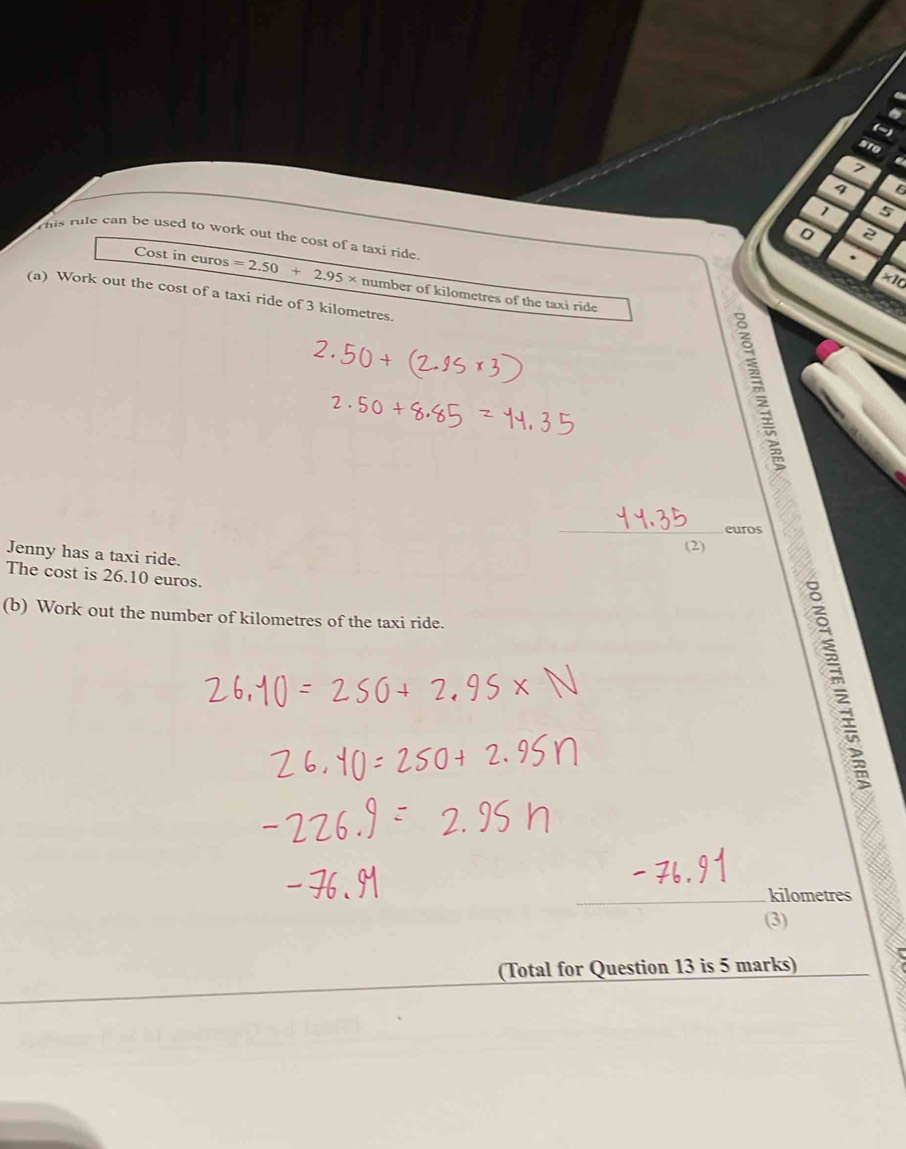 This rule can be used to work out the cost of a taxi ride.
Cost in euros = 2.50 + 2.95 × number of kilometres of the taxi ride
(a) Work out the cost of a taxi ride of 3 kilometres.
2.50 + (2.95 × 3)
2.50 + 8.85 = 11.35
11.35 euros
(2)
Jenny has a taxi ride.
The cost is 26.10 euros.
(b) Work out the number of kilometres of the taxi ride.
26.10 = 250 + 2.95 × N
26.10 = 250 + 2.95n
-226.9 = 2.95n
-76.91
-76.91 kilometres
(3)
(Total for Question 13 is 5 marks)
DO NOT WRITE IN THIS AREA
DO NOT WRITE IN THIS AREA
(−)
STO
7
4
1
5
0
2
.
×10